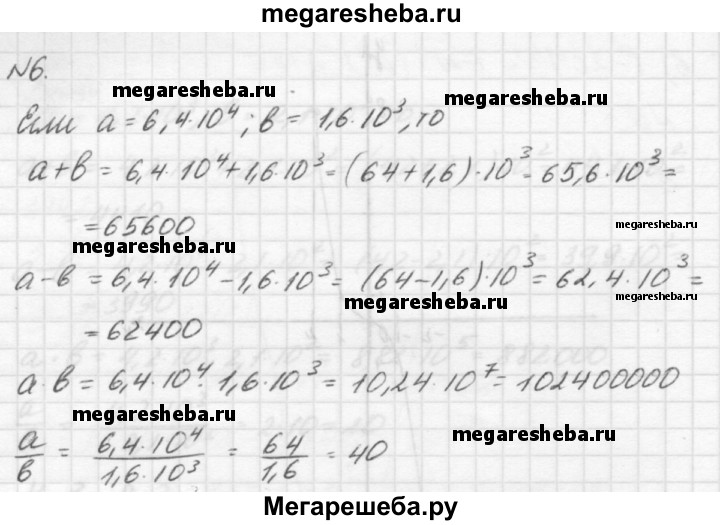 megaresheba.ru
N6.
megaresheba.ru
Если a = 6,4·10⁴; в = 1,6·10³, то
a+в = 6,4·10⁴+1,6·10³=(64+1,6)·10³=65,6·10³=
=65600
megaresheba.ru
megaresheba.ru
a-в = 6,4·10⁴-1,6·10³= (64-1,6)·10³= 62,4·10³=
megaresheba.ru
= 62400
a·в = 6,4·10⁴·1,6·10³ = 10,24·10⁷=102400000
megaresheba.ru
a/в = 6,4·10⁴/1,6·10³ = 64/1,6 = 40
megaresheba.ru
Мегарешеба.ру